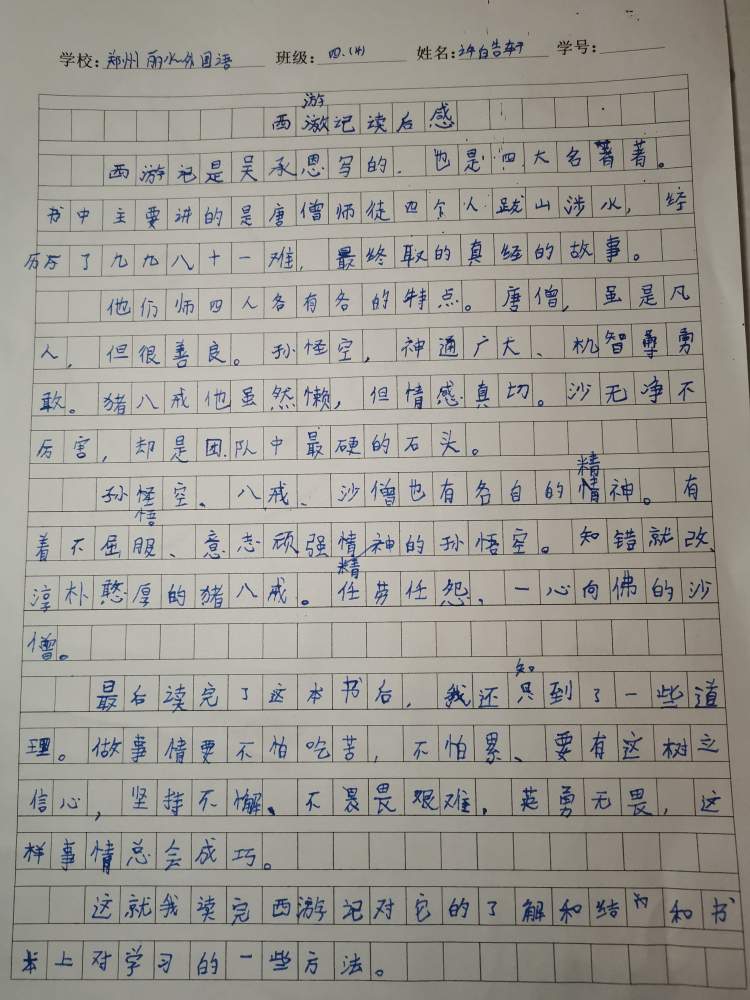 学校:郑州丽水外国语 班级:四.(4) 姓名:许皓轩 学号:
游
西激记读后感
西游记是吴承恩写的.也是四大名著著。
书中主要讲的是唐僧师徒四个人跋山涉水,经
历历了九九八十一难,最终取的真经的故事。
他们师四人各有各的特点。唐僧,虽是凡
人,但很善良。孙怪空,神通广大、机智勇勇
敢。猪八戒他虽然懒,但情感真切。沙无净不
厉害,却是团队中最硬的石头。
精
孙怪空、八戒、沙僧也有各自的情神。有
悟
着不屈服、意志顽强情神的孙悟空。知错就改、
精
淳朴憨厚的猪八戒。任劳任怨,一心向佛的沙
僧。
知
最后读完了这本书后,我还只到了一些道
理。做事情要不怕吃苦,不怕累、要有这树立
信心,坚持不懈、不畏畏艰难,英勇无畏,这
样事情总会成巧。
这就我读完西游记对它的了解和结内和书
本上对学习的一些方法。